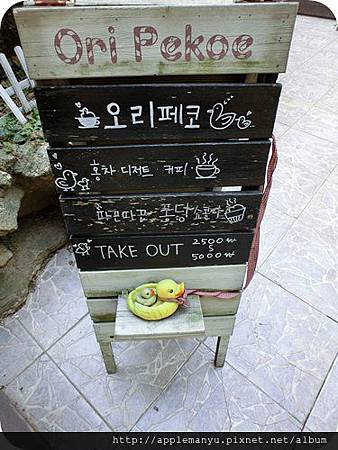 Ori Pekoe
오리페코
홍차 디저트 커피
따끈따끈 퐁당쇼콜라
TAKE OUT 2500₩
~
5000₩
http://applemanyu.pixnet.net/album